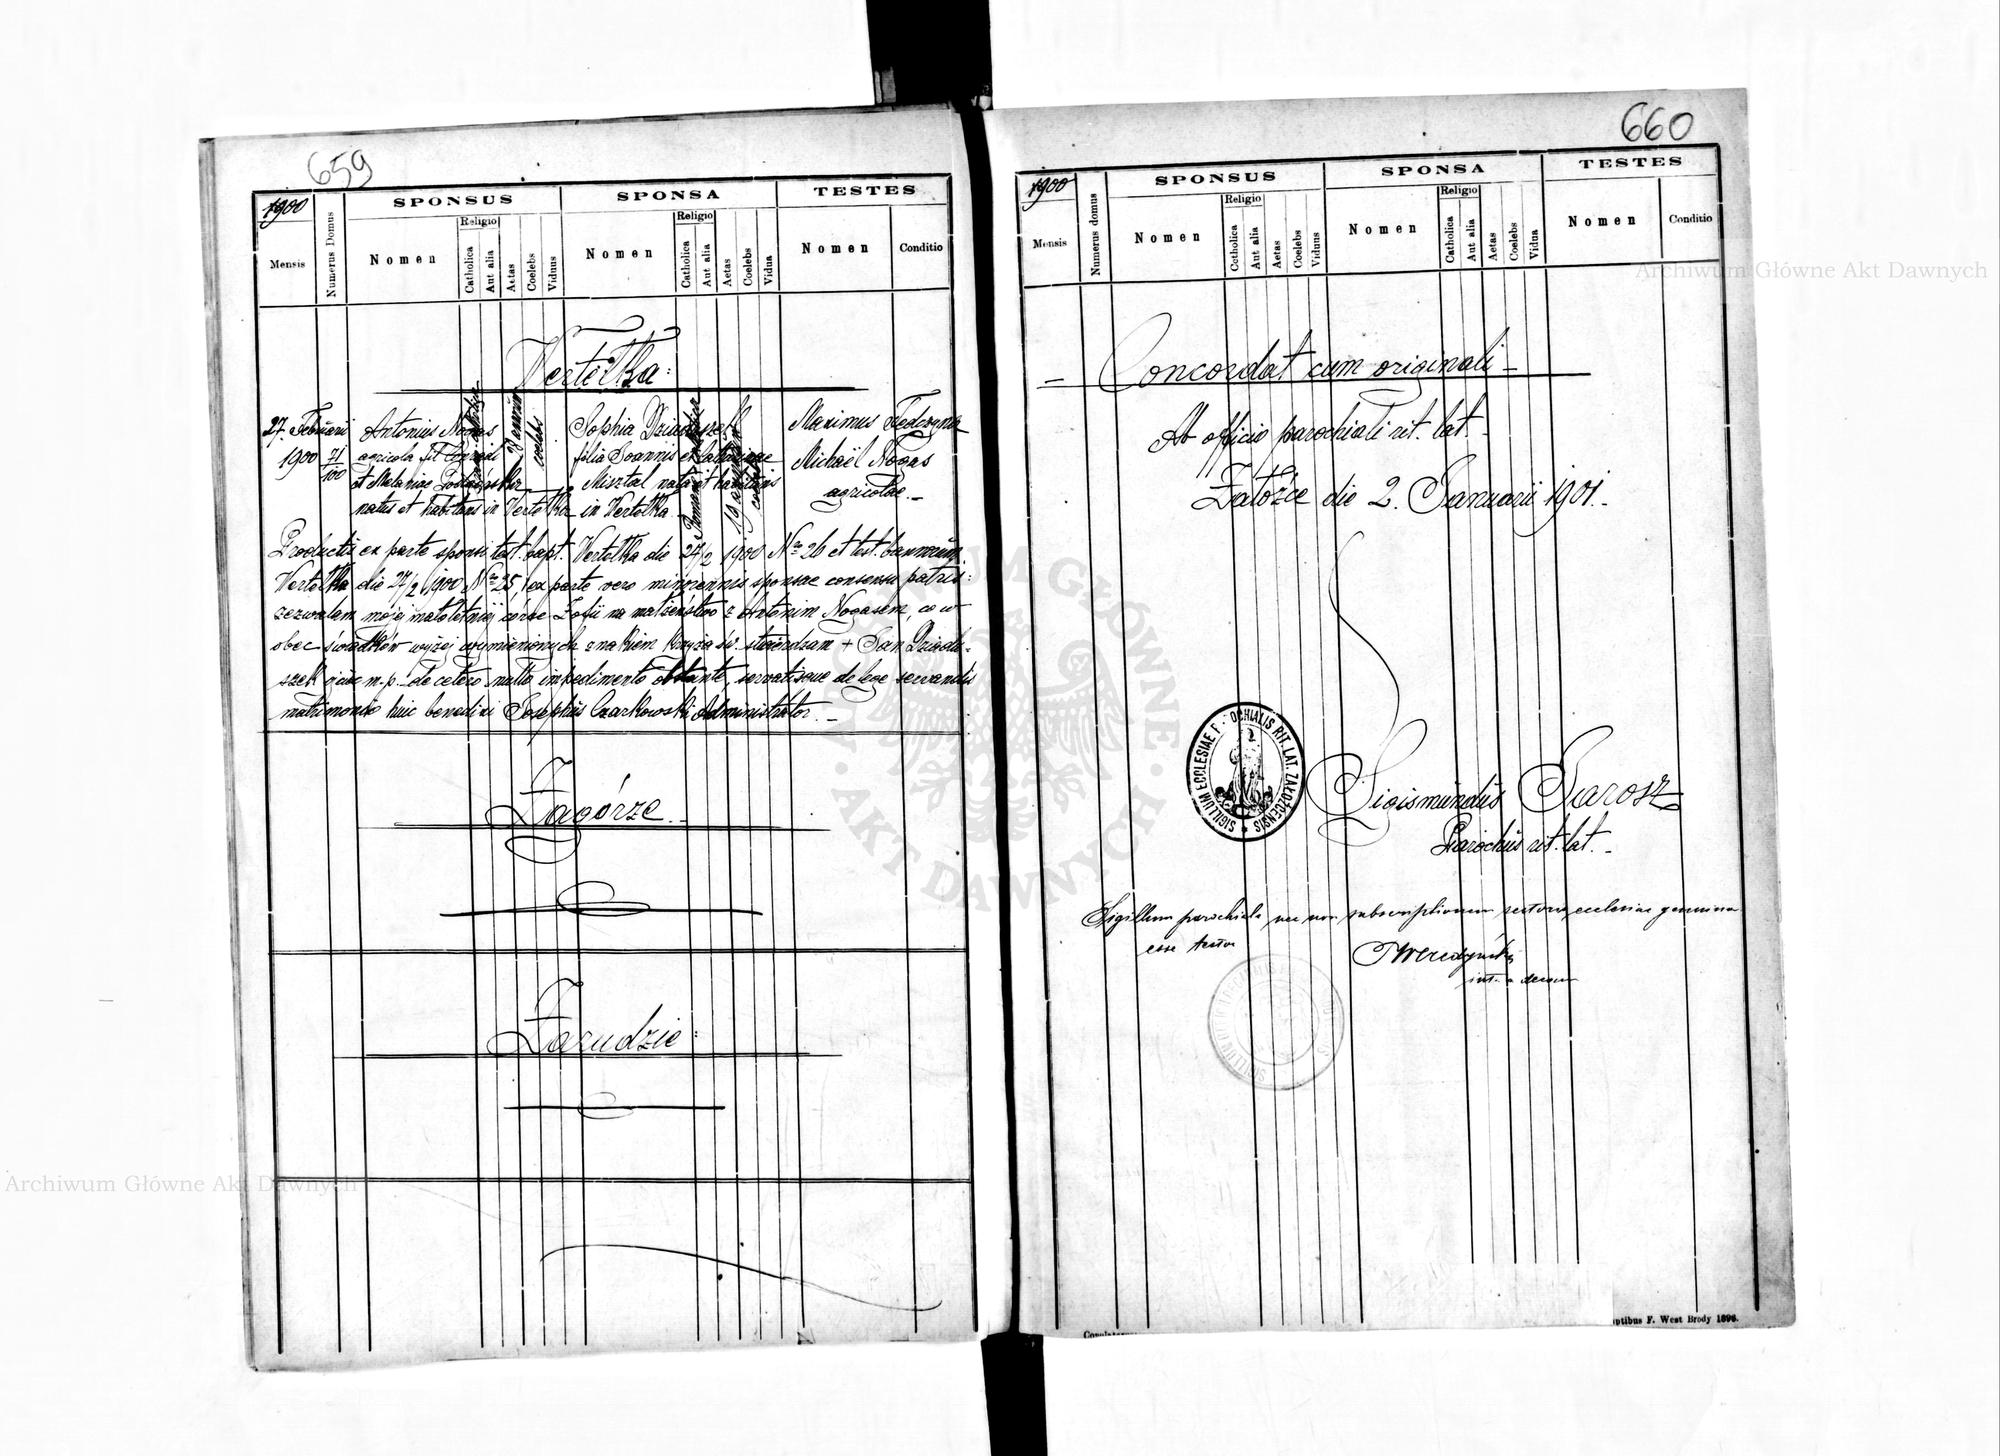 659
1900
Mensis
Numerus Domus
SPONSUS
Nomen
Religio
Catholica
Aut alia
Aetas
Coelebs
Viduus
SPONSA
Nomen
Religio
Catholica
Aut alia
Aetas
Coelebs
Vidua
TESTES
Nomen
Conditio
Vertełka:
27. Februarii
1900
71/100
Antonius Nogas
agricola fil.
et Melaniae
natus et habitans in Vertełka
Romano catholica
coelebs
Sophia Dziaduszek
filia Joannis et Catharinae
Misztal nata et habitans
in Vertełka
Romano catholica
19 annorum
coelebs
Maximus Fedczyna
Michaël Nogas
agricolae.-
Productis ex parte sponsi test. bapt. Vertełka die 27/2 1900 Nro 26 et test. bannorum
Vertełka die 27/2 1900 Nro 25, ex parte vero minorennis sponsae consensu patris:
zezwalam mojej małoletniej córce Zofii na małżeństwo z Antonim Nogasem, co w
obec świadków wyżej wymienionych znakiem krzyża św. stwierdzam + Jan Dziadu-
szek ojciec m.p. de cetero nullo impedimento obstante, servatisque de lege servandis
matrimonio huic benedixi Josephus Czarkowski Administrator.-
Zagórze.-
Zarudzie:
660
1900
Mensis
Numerus domus
SPONSUS
Nomen
Religio
Catholica
Aut alia
Aetas
Coelebs
Viduus
SPONSA
Nomen
Religio
Catholica
Aut alia
Aetas
Coelebs
Vidua
TESTES
Nomen
Conditio
- Concordat cum originali -
Ab officio parochiali rit. lat.-
Załoźce die 2. Januarii 1901.-
SIGILLUM ECCLESIAE PAROCHIALIS RIT. LAT. ZAŁOZCENSIS
Sigismundus Jarosz
Parochus rit. lat.-
Sigillum parochiale nec non subscriptionem rectoris ecclesiae genuina
esse testor
Typis F. West Brody 1896.
Archiwum Główne Akt Dawnych
Archiwum Główne Akt Dawnych
ARCHIWUM GŁÓWNE · AKT DAWNYCH ·